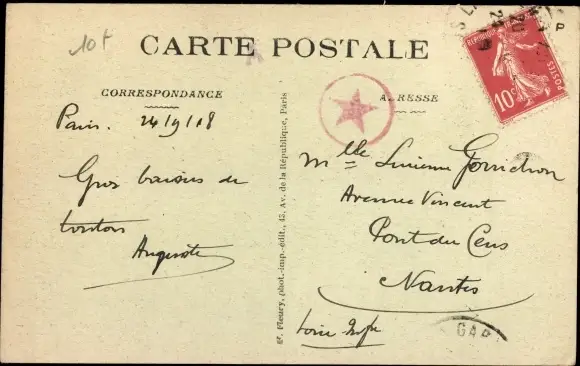 10f
CARTE POSTALE
CORRESPONDANCE
Paris. 24/9/18
Gros baisers de
tonton
Auguste
Fleury, phot.-imp.-édit., 43, Av. de la République, Paris
ADRESSE
Mlle Lucienne
Avenue Vincent
Pont du Cens
Nantes
Loire Infre
10c
POSTES
GARE